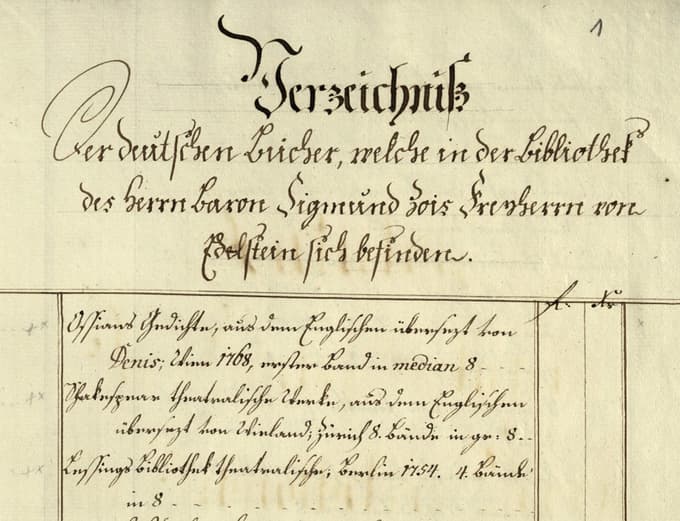 1
Verzeichniß
Der deutschen Bücher, welche in der Bibliothek
des Herrn Baron Sigmund Zois Freyherrn von
Edelstein sich befinden.
fl: Xr
Ossians Gedichte, aus dem Englischen übersezt von
Denis; Wien 1768, erster Band in median 8 - - -
Shakespear theatralische Werke, aus dem Englischen
übersezt von Wieland; Zürich 8. Bände in gr: 8 - -
Lessings Bibliothek theatralische; Berlin 1754. 4. Bände
in 8 - - - - - - - - - -